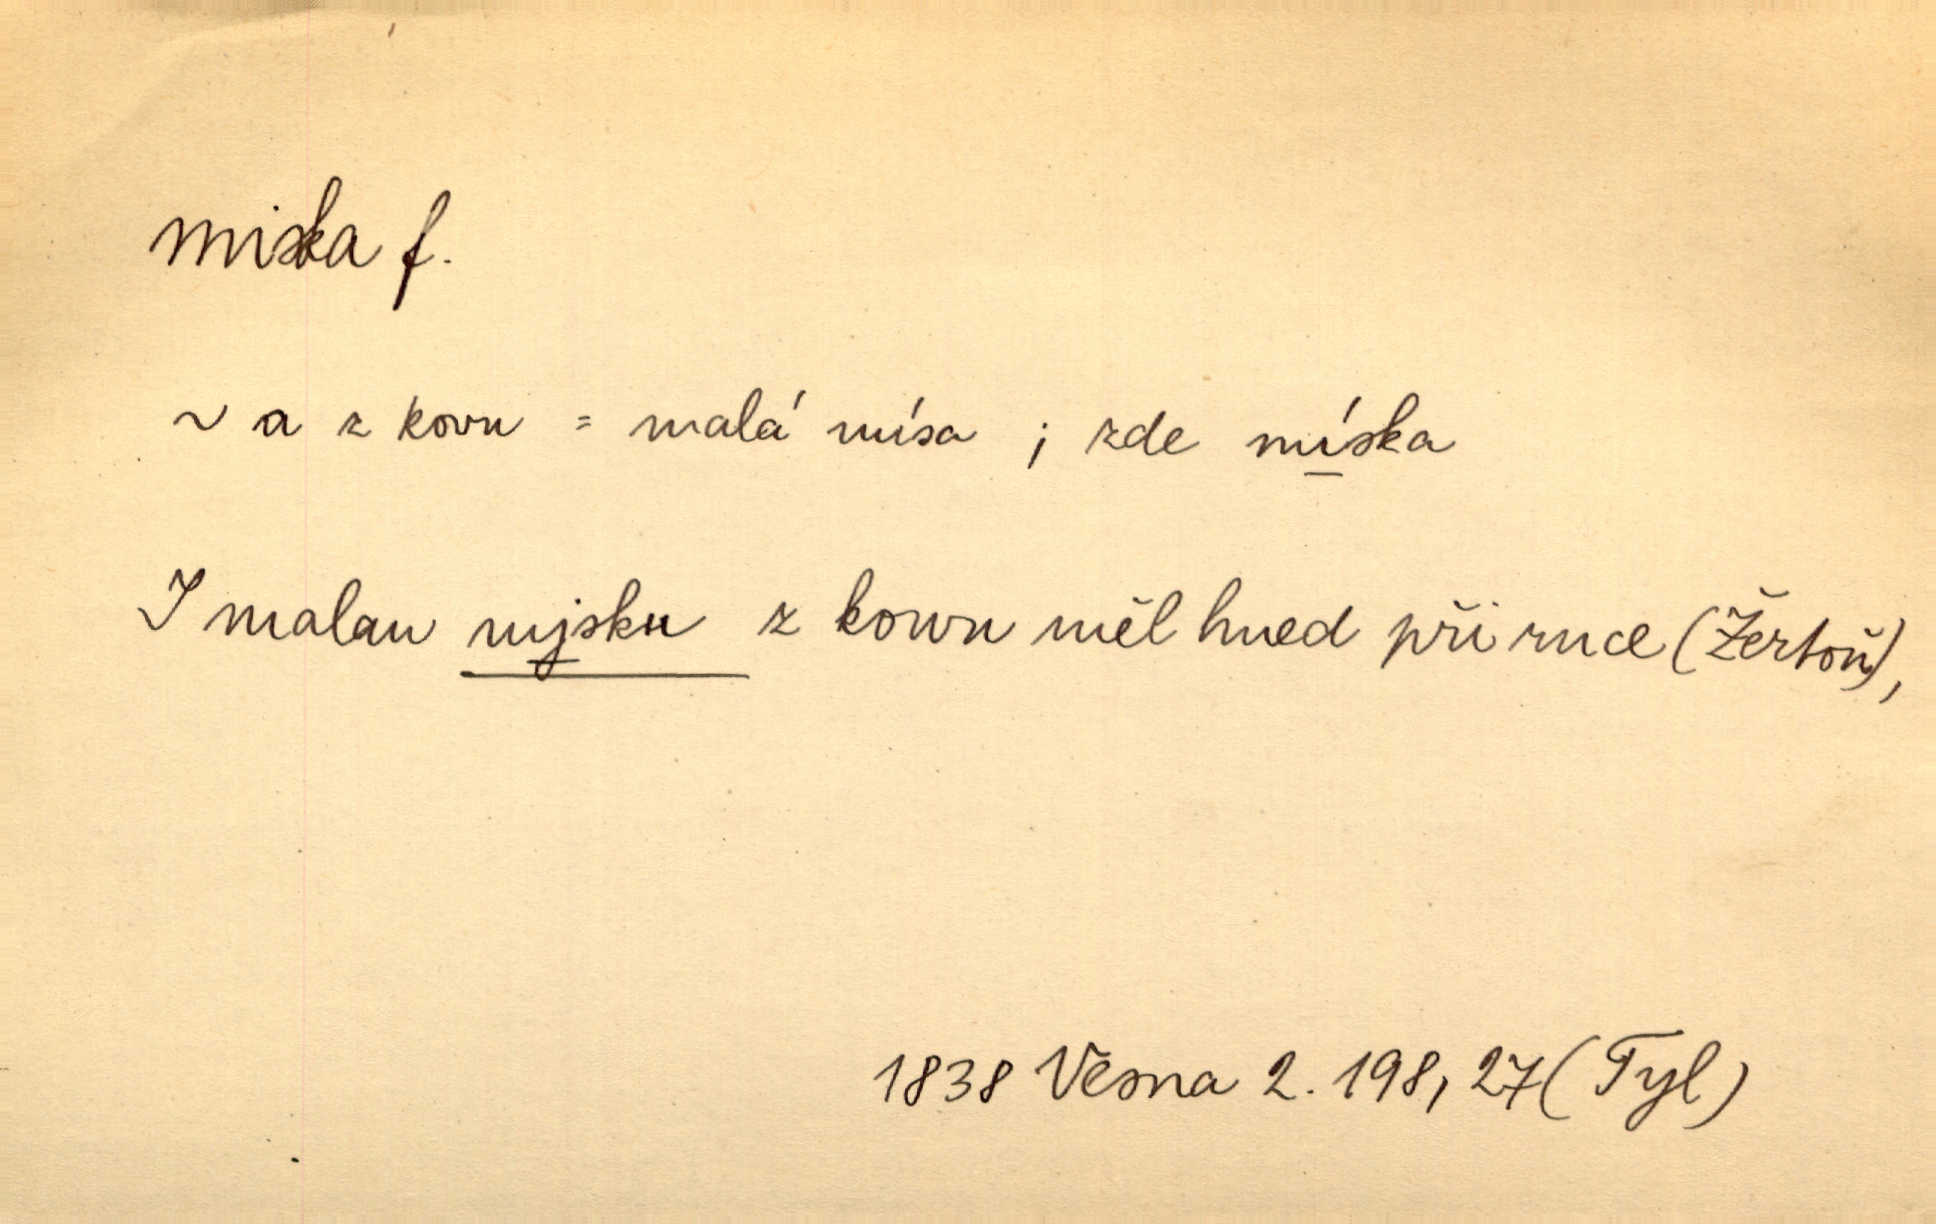 miska f.
~ a z kovu = malá mísa ; zde míska
I malau mjsku z kowu měl hned při ruce (Žertoň),
1838 Vesna 2. 198, 27 (Tyl)